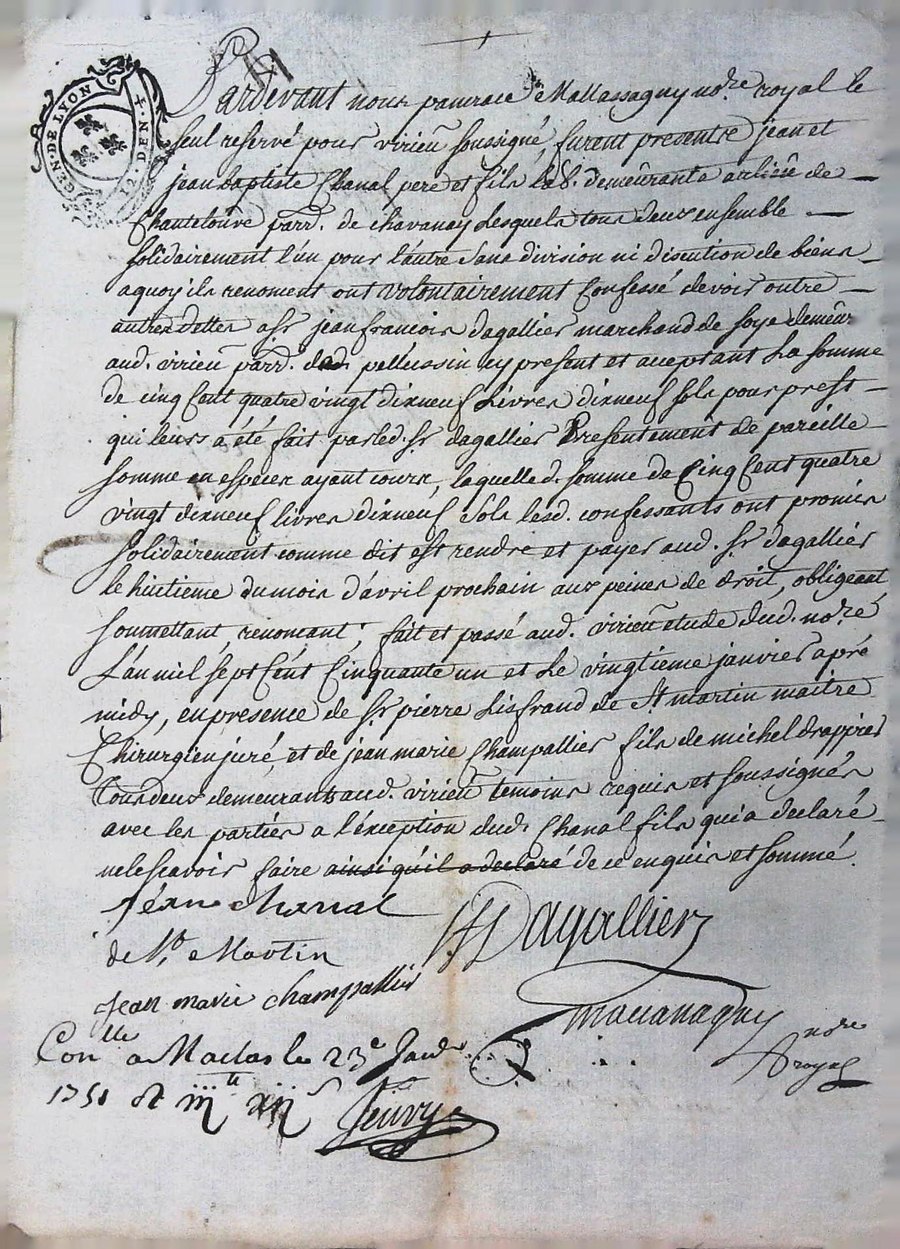 GEN. DE LYON
12. DEN.
Pardevant nous pancrace Mallassagny no.re royal le
seul reservé pour virieû soussigné, furent presents jean et
jean baptiste Chanal pere et fils lab. demeûrants de
Chanteloûve parr. de chavanay Lesquels tous deux ensemble
solidairement L'un pour L'autre sans division ni discution de biens
aquoy ils renoncent ont volontairement Confessé devoir outre
autres dettes a sr. jean francois dagallier marchand de soye demeûr
aud. virieû parr. de pellussin icy present et aceptant La somme
de cinq Cent quatre vingt dixneuf Livres dixneuf sols pour prest
qui leurs a été fait par led. sr. dagallier Presentement de pareille
somme en especes ayant cours, laquelle d. somme de Cinq Cent quatre
vingt dixneuf livres dixneuf sols lesd. confessants ont promis
solidairement comme dit est rendre et payer aud. sr. dagallier
le huitieme du mois d'avril prochain aux peines de droit, obligeant
soumettant, renoncant; fait et passé aud. virieû etude dud. no.re
L'an mil sept Cent Cinquante un et Le vingtieme janvier apré
midy, en presence de sr. pierre Lisfrand de St martin maitre
Chirurgien juré, et de jean marie Champallier fils de michel drappier
tous deux demeurants aud. virieû temoins requis et soussignés
avec les parties a l'éxception dud. Chanal fils qui a declaré
ne le scavoir faire ainsi qu'il a declaré de ce enquis et sommé.
jéan chanal
Dagallier
de St. Martin
Jean marie champallier
Mallassagny nore
royal
Con.lle a Maclas le 23e Janv.
1751